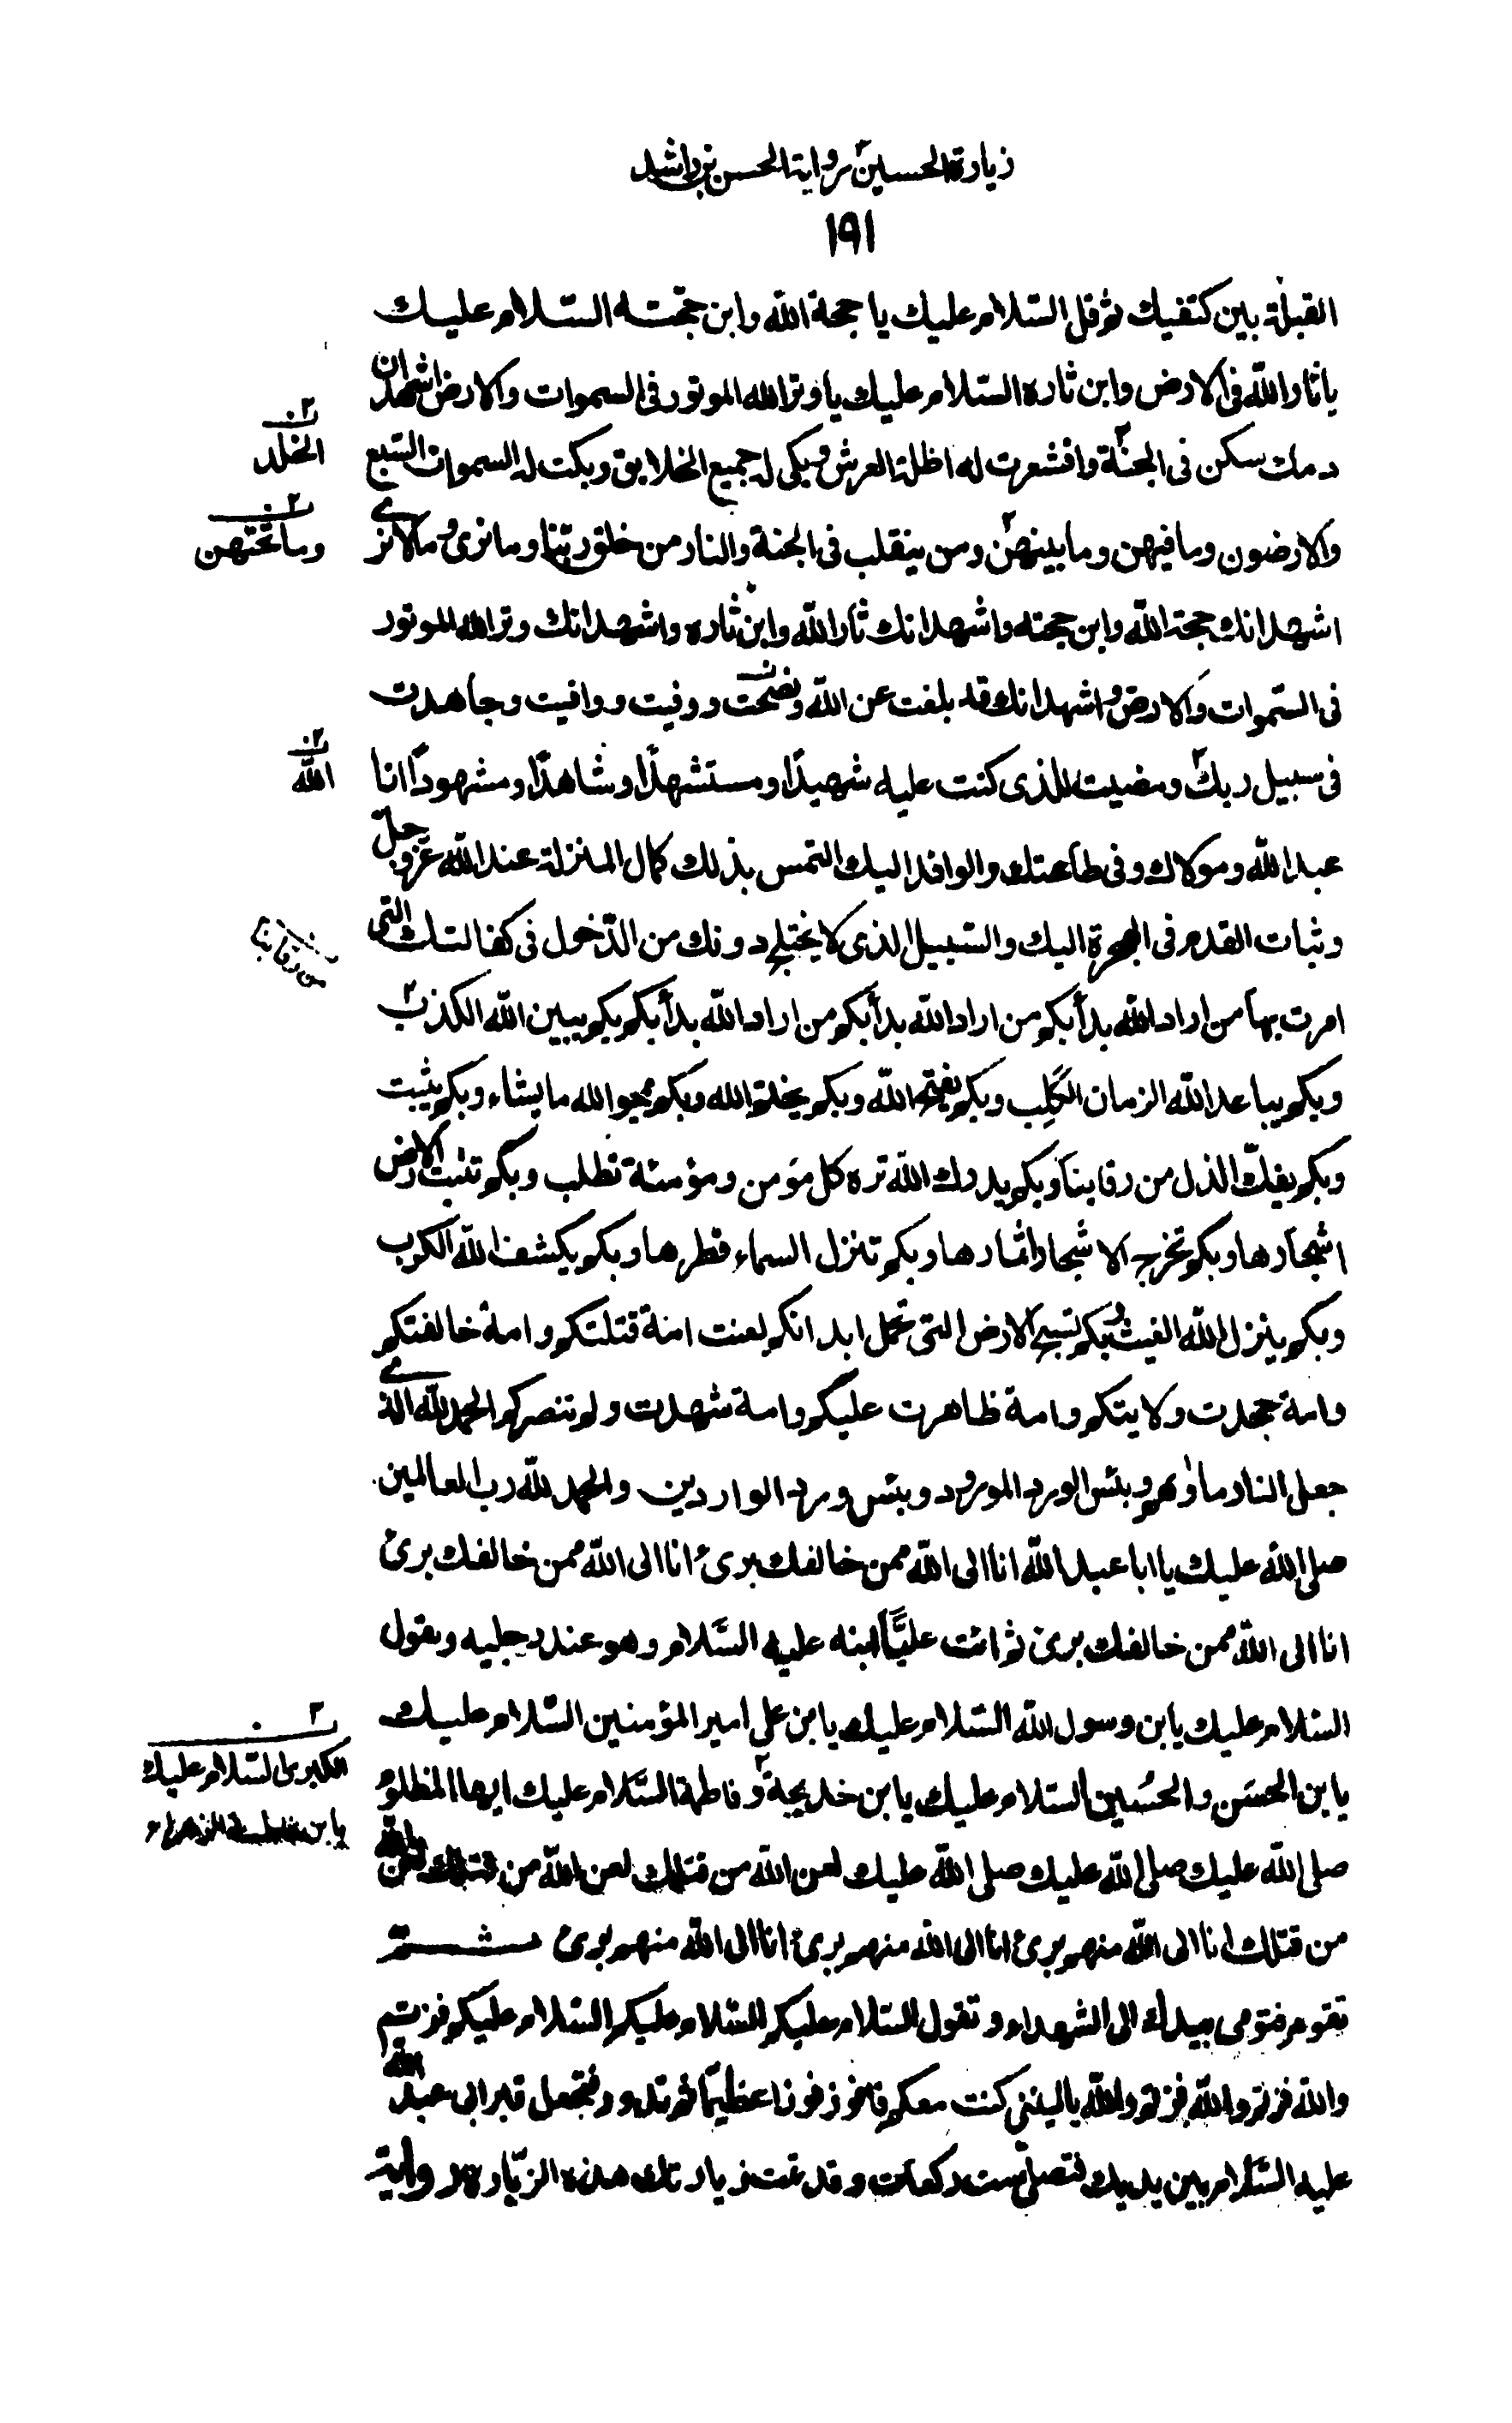 زيارة الحسين ع برواية الحسن بن راشد
١٩١
القبلة بين كتفيك ثم قل السّلام عليك يا حجة اللّه وابن حجّته السّلام عليك
يا ثار اللّه فى الارض وابن ثاره السّلام عليك يا وتر الله الموتور فى السموات والارض اشهد ان
دمك سكن فى الجنّة واقشعرت له اظلة العرش وبكى له جميع الخلايق وبكت له السموات السّبع
خ
الخلد
والارضون وما فيهن وما بينهنّ ومن ينقلب فى الجنة والنار من خلق ربّنا وما نرى وما لا نرى
خ
وما تحتهن
اشهد انك حجة اللّه وابن حجته واشهد انك ثار اللّه وابن ثاره واشهد انك وتر الله الموتور
فى السّموات والارض واشهد انك قد بلغت عن اللّه ونصحت ووفيت ووافيت وجاهدت
فى سبيل ربك ومضيت للذى كنت عليه شهيدًا ومستشهدًا وشاهدًا ومشهودًا انا
خ
اللّه
عبد اللّه ومولاك وفى طاعتك والوافد اليك التمس بذلك كمال المنزلة عند اللّه عزّ وجلّ
وثبات القدم فى الهجرة اليك والسّبيل الذى لا يختلج دونك من الدّخول فى كفالتك التى
من رقابنا
امرت بها من اراد اللّه بدأ بكم من اراد اللّه بدأ بكم من اراد اللّه بدأ بكم بكم يبين اللّه الكذب
وبكم يباعد اللّه الزمان الكَلِب وبكم يفتح اللّه وبكم يختم الله وبكم يمحو الله ما يشاء وبكم يثبت
وبكم يفكّ الذل من رقابنا وبكم يدرك اللّه تره كل مؤمن ومؤمنة تطلب وبكم تنبت الارض
اشجارها وبكم تخرج الاشجار اثمارها وبكم تنزل السماء قطرها وبكم يكشف اللّه الكرب
وبكم ينزل اللّه الغيث وبكم تسيخ الارض التى تحمل ابدانكم لعنت امة قتلتكم وامة خالفتكم
وامة جحدت ولايتكم وامة ظاهرت عليكم وامة شهدت ولم تنصركم الحمد للّه الذى
جعل النار ماواهم وبئس الورد المورود وبئس ورد الواردين والحمد للّه رب العالمين.
صلى اللّه عليك يا ابا عبد اللّه انا الى اللّه ممن خالفك برئ انا الى اللّه ممن خالفك برئ
انا الى اللّه ممن خالفك برئ ثم ائت عليًّا ابنه عليه السَّلام وهو عند رجليه وتقول
السّلام عليك يا بن رسول الله السّلام عليك يا بن على امير المؤمنين السّلام عليك
يا بن الحسَن والحسُين السّلام عليك يا بن خديجة وفاطمة السّلام عليك ايها المظلوم
خ
الكبرى السّلام عليك
يا بن فاطمة الزهراء
صلى اللّه عليك صلى اللّه عليك صلى اللّه عليك لعن اللّه من قتلك لعن اللّه من قتلك لعن اللّه
من قتلك انا الى اللّه منهم برئ انا الى اللّه منهم برئ انا الى اللّه منهم برئ ثم
تقوم فتومى بيدك الى الشهداء وتقول السّلام عليكم السّلام عليكم السّلام عليكم فزتم
واللّه فزتم واللّه فزتم واللّه يا ليتنى كنت معكم فافوز فوزا عظيمًا ثم تدور فتجعل قبر ابى عبد اللّه
عليه السّلام بين يديك فتصلّى ست ركعات وقد تمت زيارتك هذه الزيارة برواية